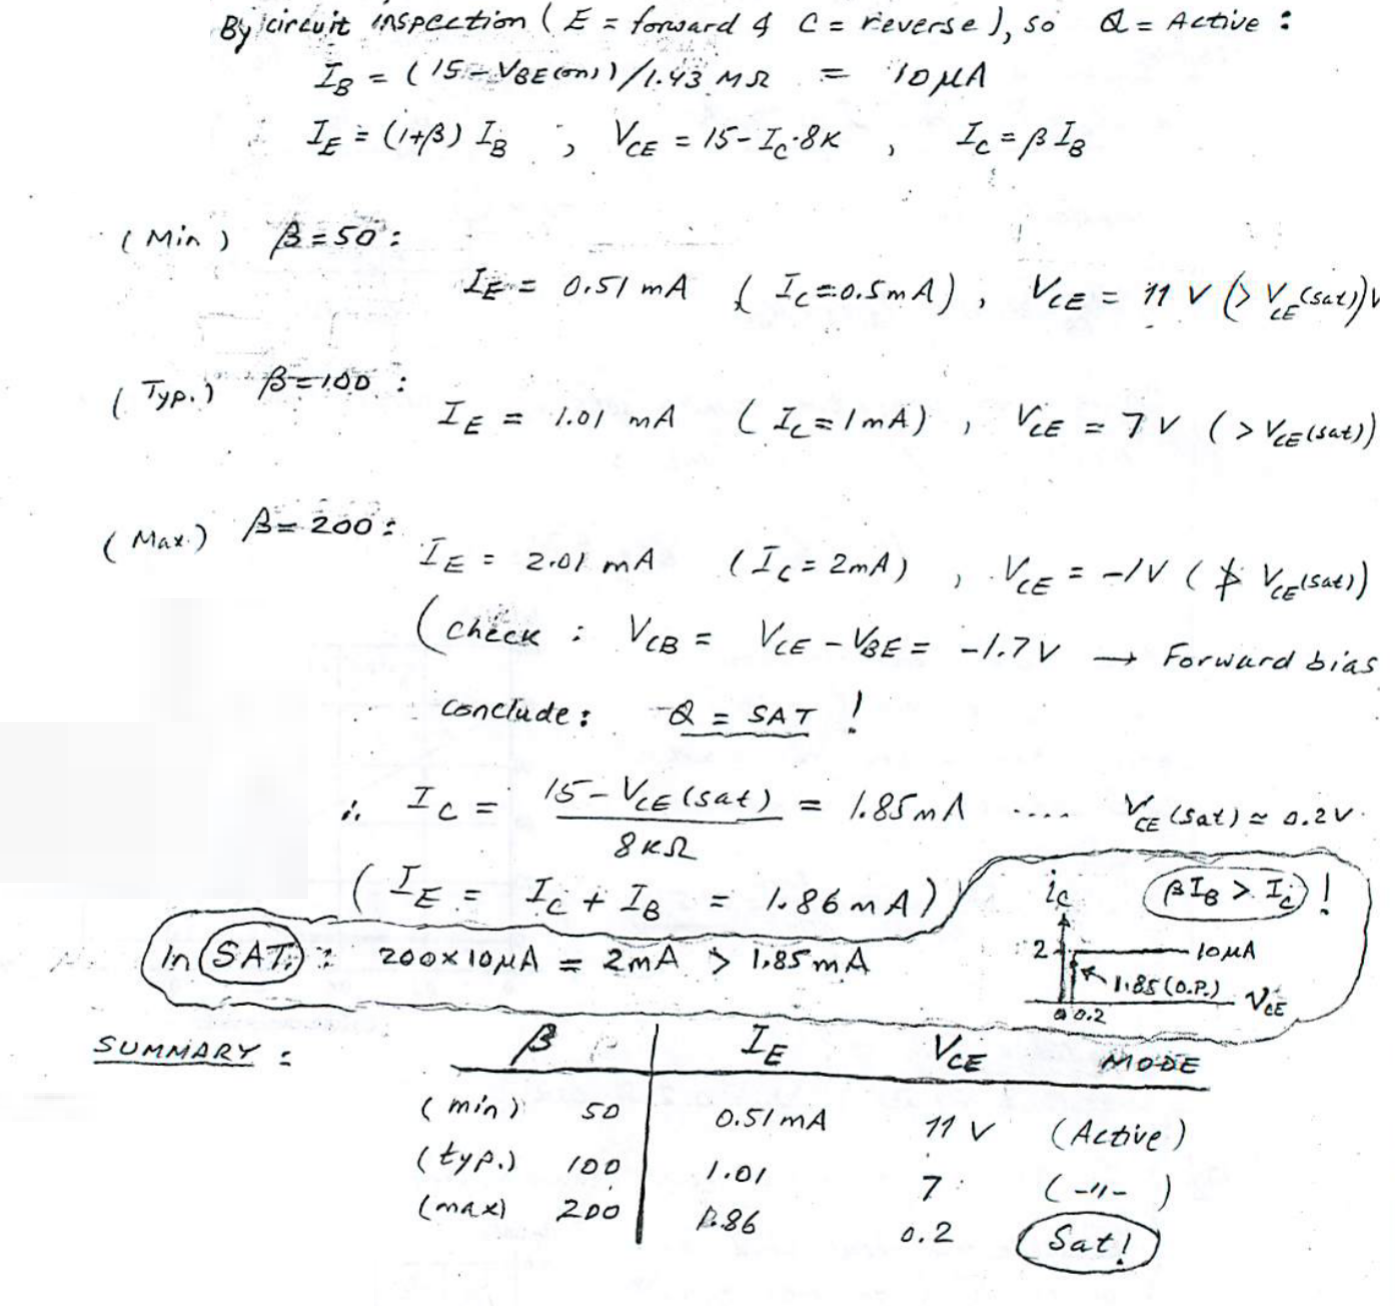 By circuit inspection ( E = forward & C = reverse ), so Q = Active :
I_B = ( 15 - V_BE(on) ) / 1.43 MΩ = 10 μA
I_E = (1+β) I_B ; V_CE = 15 - I_C·8K , I_C = β I_B
( Min ) β = 50 :
I_E = 0.51 mA ( I_C = 0.5mA ) , V_CE = 11 V (> V_CE(sat))
( Typ. ) β = 100 :
I_E = 1.01 mA ( I_C = 1mA ) , V_CE = 7 V ( > V_CE(sat))
( Max. ) β = 200 :
I_E = 2.01 mA ( I_C = 2mA ) , V_CE = -1V ( ≯ V_CE(sat))
( check : V_CB = V_CE - V_BE = -1.7 V → Forward bias
conclude : Q = SAT !
∴ I_C = (15 - V_CE(sat)) / 8KΩ = 1.85 mA .... V_CE(sat) ≈ 0.2V.
( I_E = I_C + I_B = 1.86 mA )
i_C β I_B > I_C !
In SAT. : 200×10μA = 2mA > 1.85mA
2 10μA
1.85 (O.P.) V_CE
0 0.2
SUMMARY : β I_E V_CE MODE
( min ) 50 0.51 mA 11 V ( Active )
( typ. ) 100 1.01 7 ( -"- )
( max ) 200 1.86 0.2 Sat !